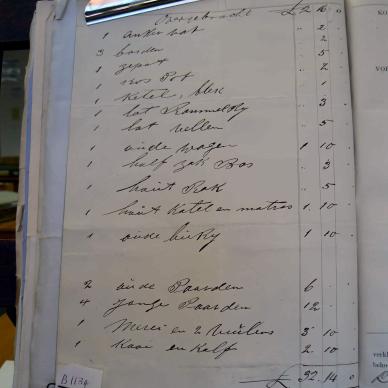 Overgebracht £ 2 16 0
1 anker vat " 2
3 borden " 2
1 " 5
1 Pot " 2
1 Ketel, blik " 1
1 lot Rommelary " 3
1 lot vellen " 5
1 oude wagen 1 10
1 half zak Bos " 3
1 hout Rak " 5
1 hout Katel en matras 1 10
1 oude 1 10
2 oude Paarden 6
4 jonge Paarden 12
1 Merrie en 2 3 10
1 Koei en Kalf 2 10
£ 32 14 0
B1134